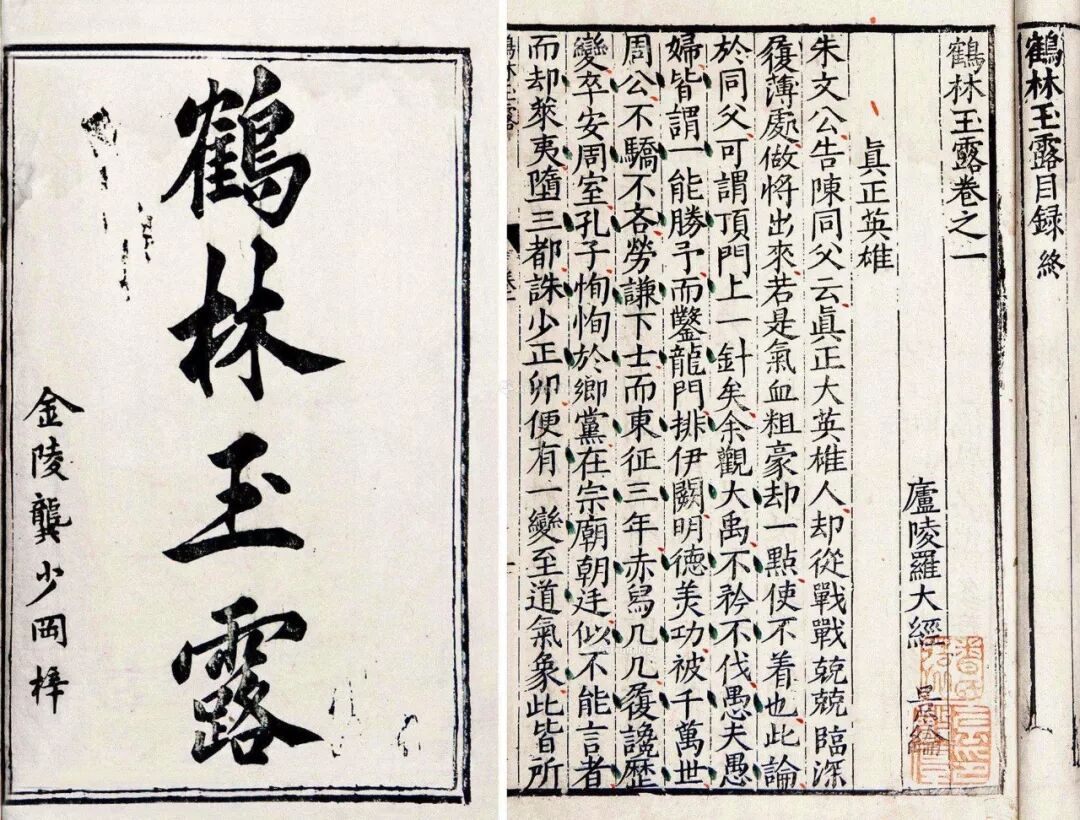 鶴林玉露
金陵龔少岡梓
鶴林玉露目録 終
鶴林玉露卷之一
廬陵羅大經 景綸
眞正英雄
朱文公告陳同父云眞正大英雄人却從戰戰兢兢臨深
履薄處做將出來若是氣血粗豪却一點使不着也此論
於同父可謂頂門上一針矣余觀大禹不矜不伐愚夫愚
婦皆謂一能勝予而鑿龍門排伊闕明德美功被千萬世
周公不驕不吝勞謙下士而東征三年赤舄几几履讒歷
變卒安周室孔子恂恂於鄉黨在宗廟朝廷似不能言者
而却萊夷墮三都誅少正卯便有一變至道氣象此皆所